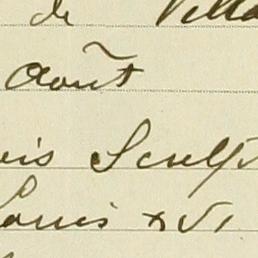 de Villa
Août
ois Sculpt
Louis XVI